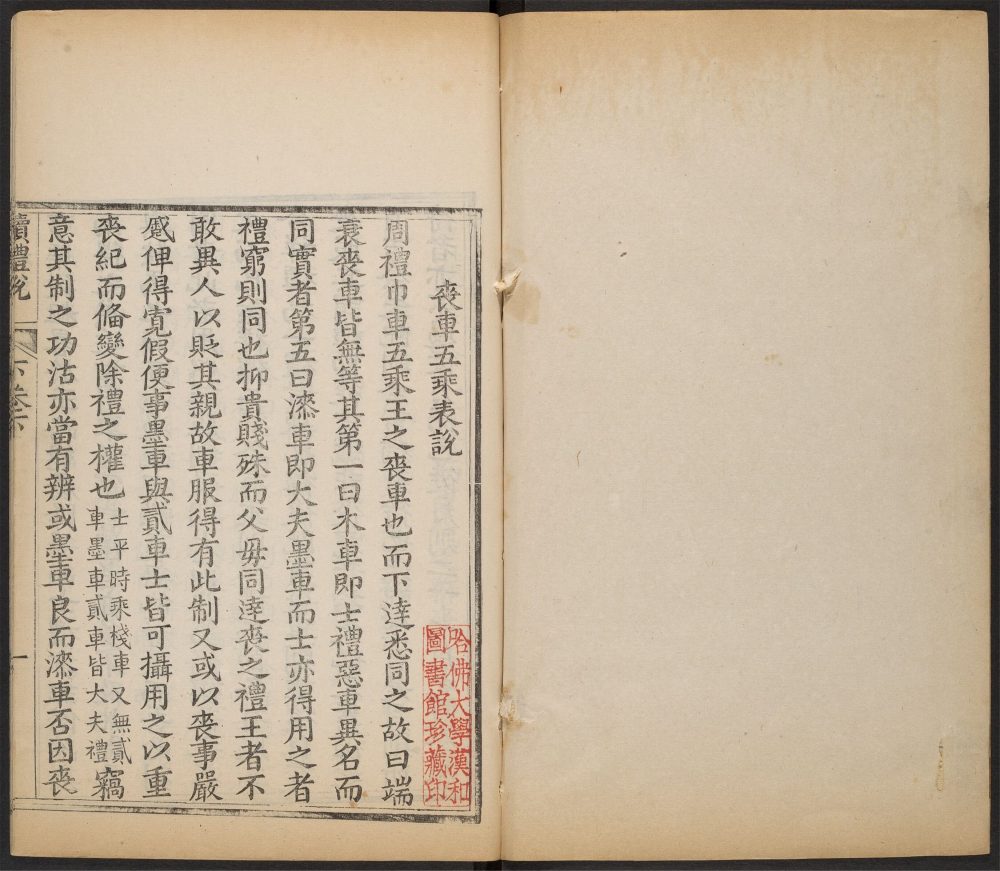 喪車五乘表說
周禮巾車五乘王之喪車也而下逹悉同之故曰端
衰喪車皆無等其第一曰木車即士禮惡車異名而
同實者第五曰漆車即大夫墨車而士亦得用之者
禮窮則同也抑貴賤殊而父毋同逹喪之禮王者不
敢異人以貶其親故車服得有此制又或以喪事嚴
蹙俾得寛假便事墨車與貳車士皆可攝用之以重
喪紀而偹變除禮之權也士平時乘棧車又無貳車墨車貳車皆大夫禮竊
意其制之功沽亦當有辨或墨車良而漆車否因喪
讀禮說
卷
一
哈佛大學漢和
圖書館珍藏印